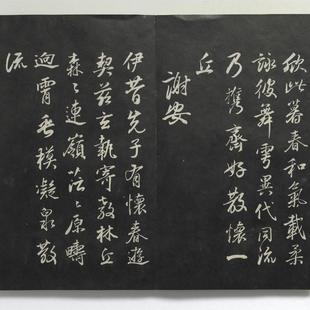 欣此暮春和氣載柔
詠彼舞雩異代同流
乃攜齊好散懷一
丘
謝安
伊昔先子有懷春遊
契茲言執寄敖林丘
森〻連嶺茫〻原疇
迥霄垂凝泉散
流